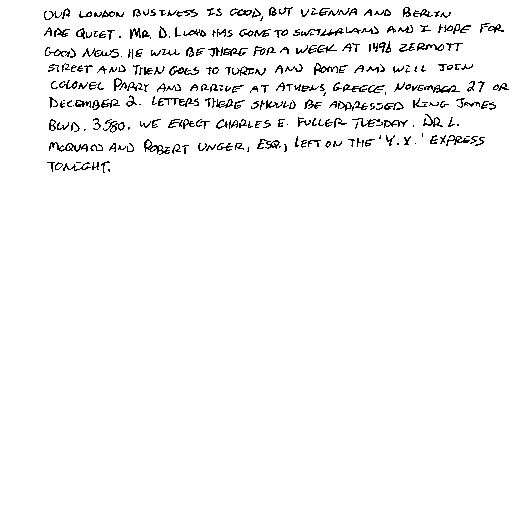 OUR LONDON BUSINESS IS GOOD, BUT VIENNA AND BERLIN
ARE QUIET. MR. D. LLOYD HAS GONE TO SWITZERLAND AND I HOPE FOR
GOOD NEWS. HE WILL BE THERE FOR A WEEK AT 1496 ZERMOTT
STREET AND THEN GOES TO TURIN AND ROME AND WILL JOIN
COLONEL PARRY AND ARRIVE AT ATHENS, GREECE, NOVEMBER 27 OR
DECEMBER 2. LETTERS THERE SHOULD BE ADDRESSED KING JAMES
BLVD. 3580. WE EXPECT CHARLES E. FULLER TUESDAY. DR L.
MCQUAID AND ROBERT UNGER, ESQ., LEFT ON THE 'Y.X.' EXPRESS
TONIGHT.